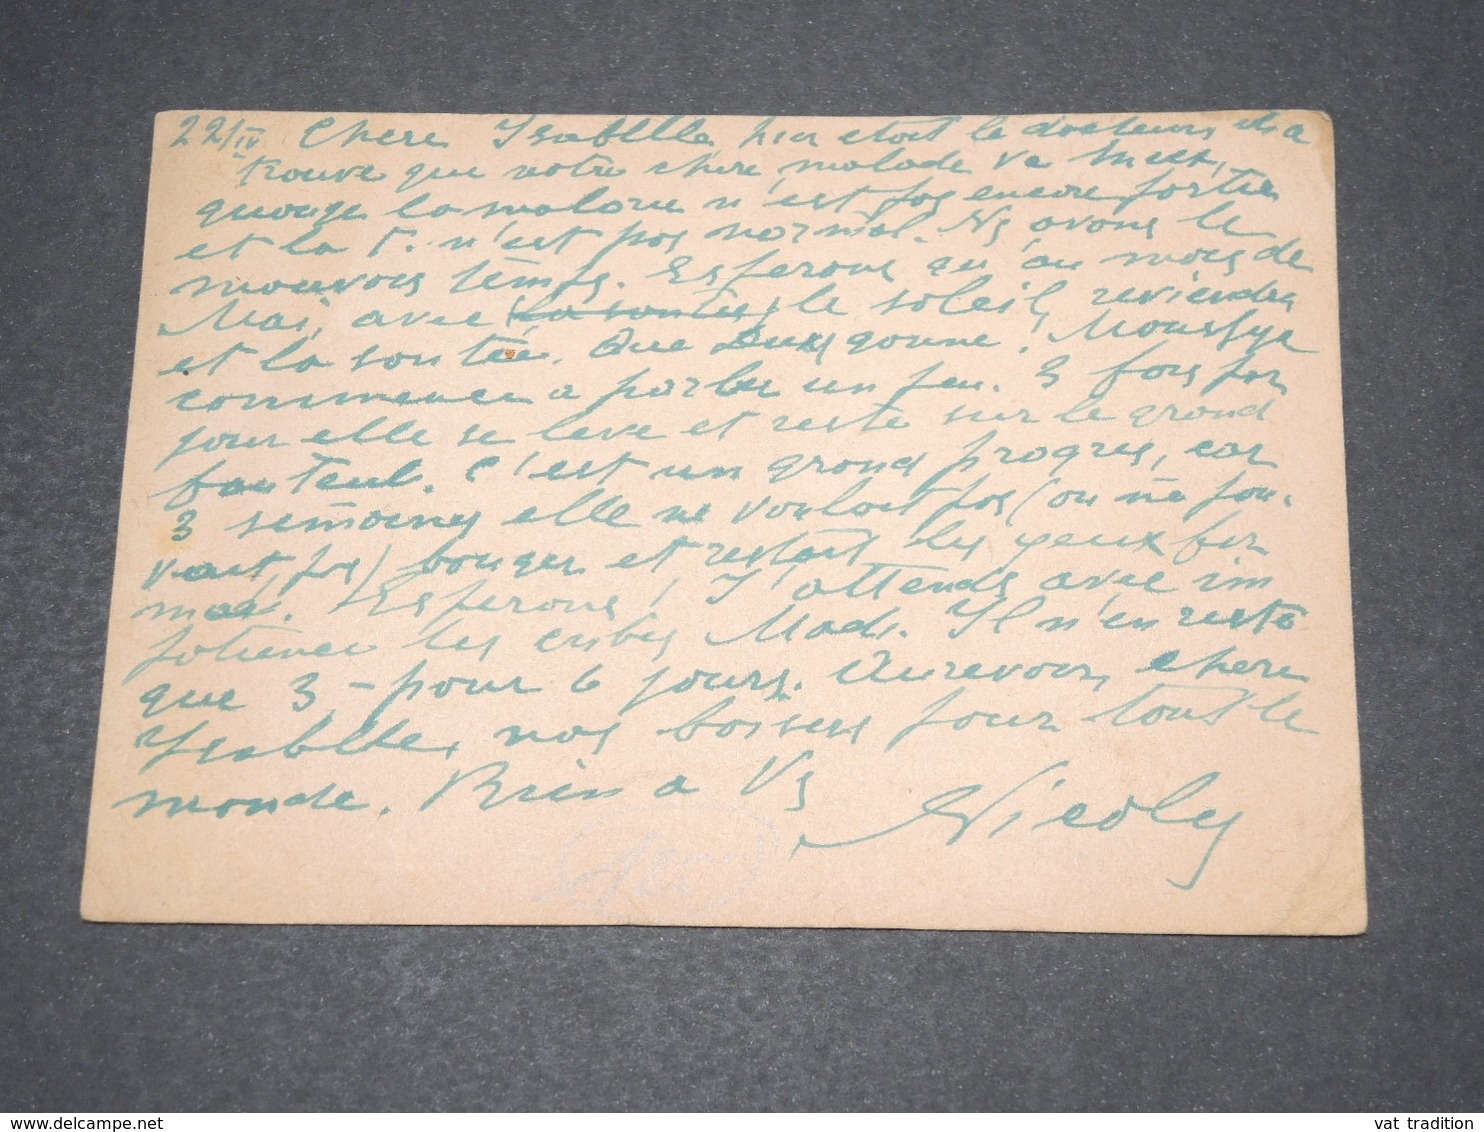 22/IV Chere Isabelle hier etait le docteur, il a
trouve que notre chere malade va mieux,
quoique la malarie n'est pas encore sortie
et la T. n'est pas normal. Ns avons le
mauvais temps. Esperons qu'au mois de
Mai, avec le soleil, reviendra
et la santée. Que Dieu donne!
commence a parler un peu. 3 fois par
jour elle se leve et reste sur le grand
fauteuil. C'est un grand progres, car
3 semaines elle ne voulait pas (ou ne pou-
vait pas) bouger et restait les yeux fer
mes. Esperons! J'attends avec im
patience les Mad. Il n'en reste
que 3 – pour 6 jours. Aurevoir, chere
Isabelle, nos baisers pour tout le
monde. Bien a Vs
Nicoly
vat tradition